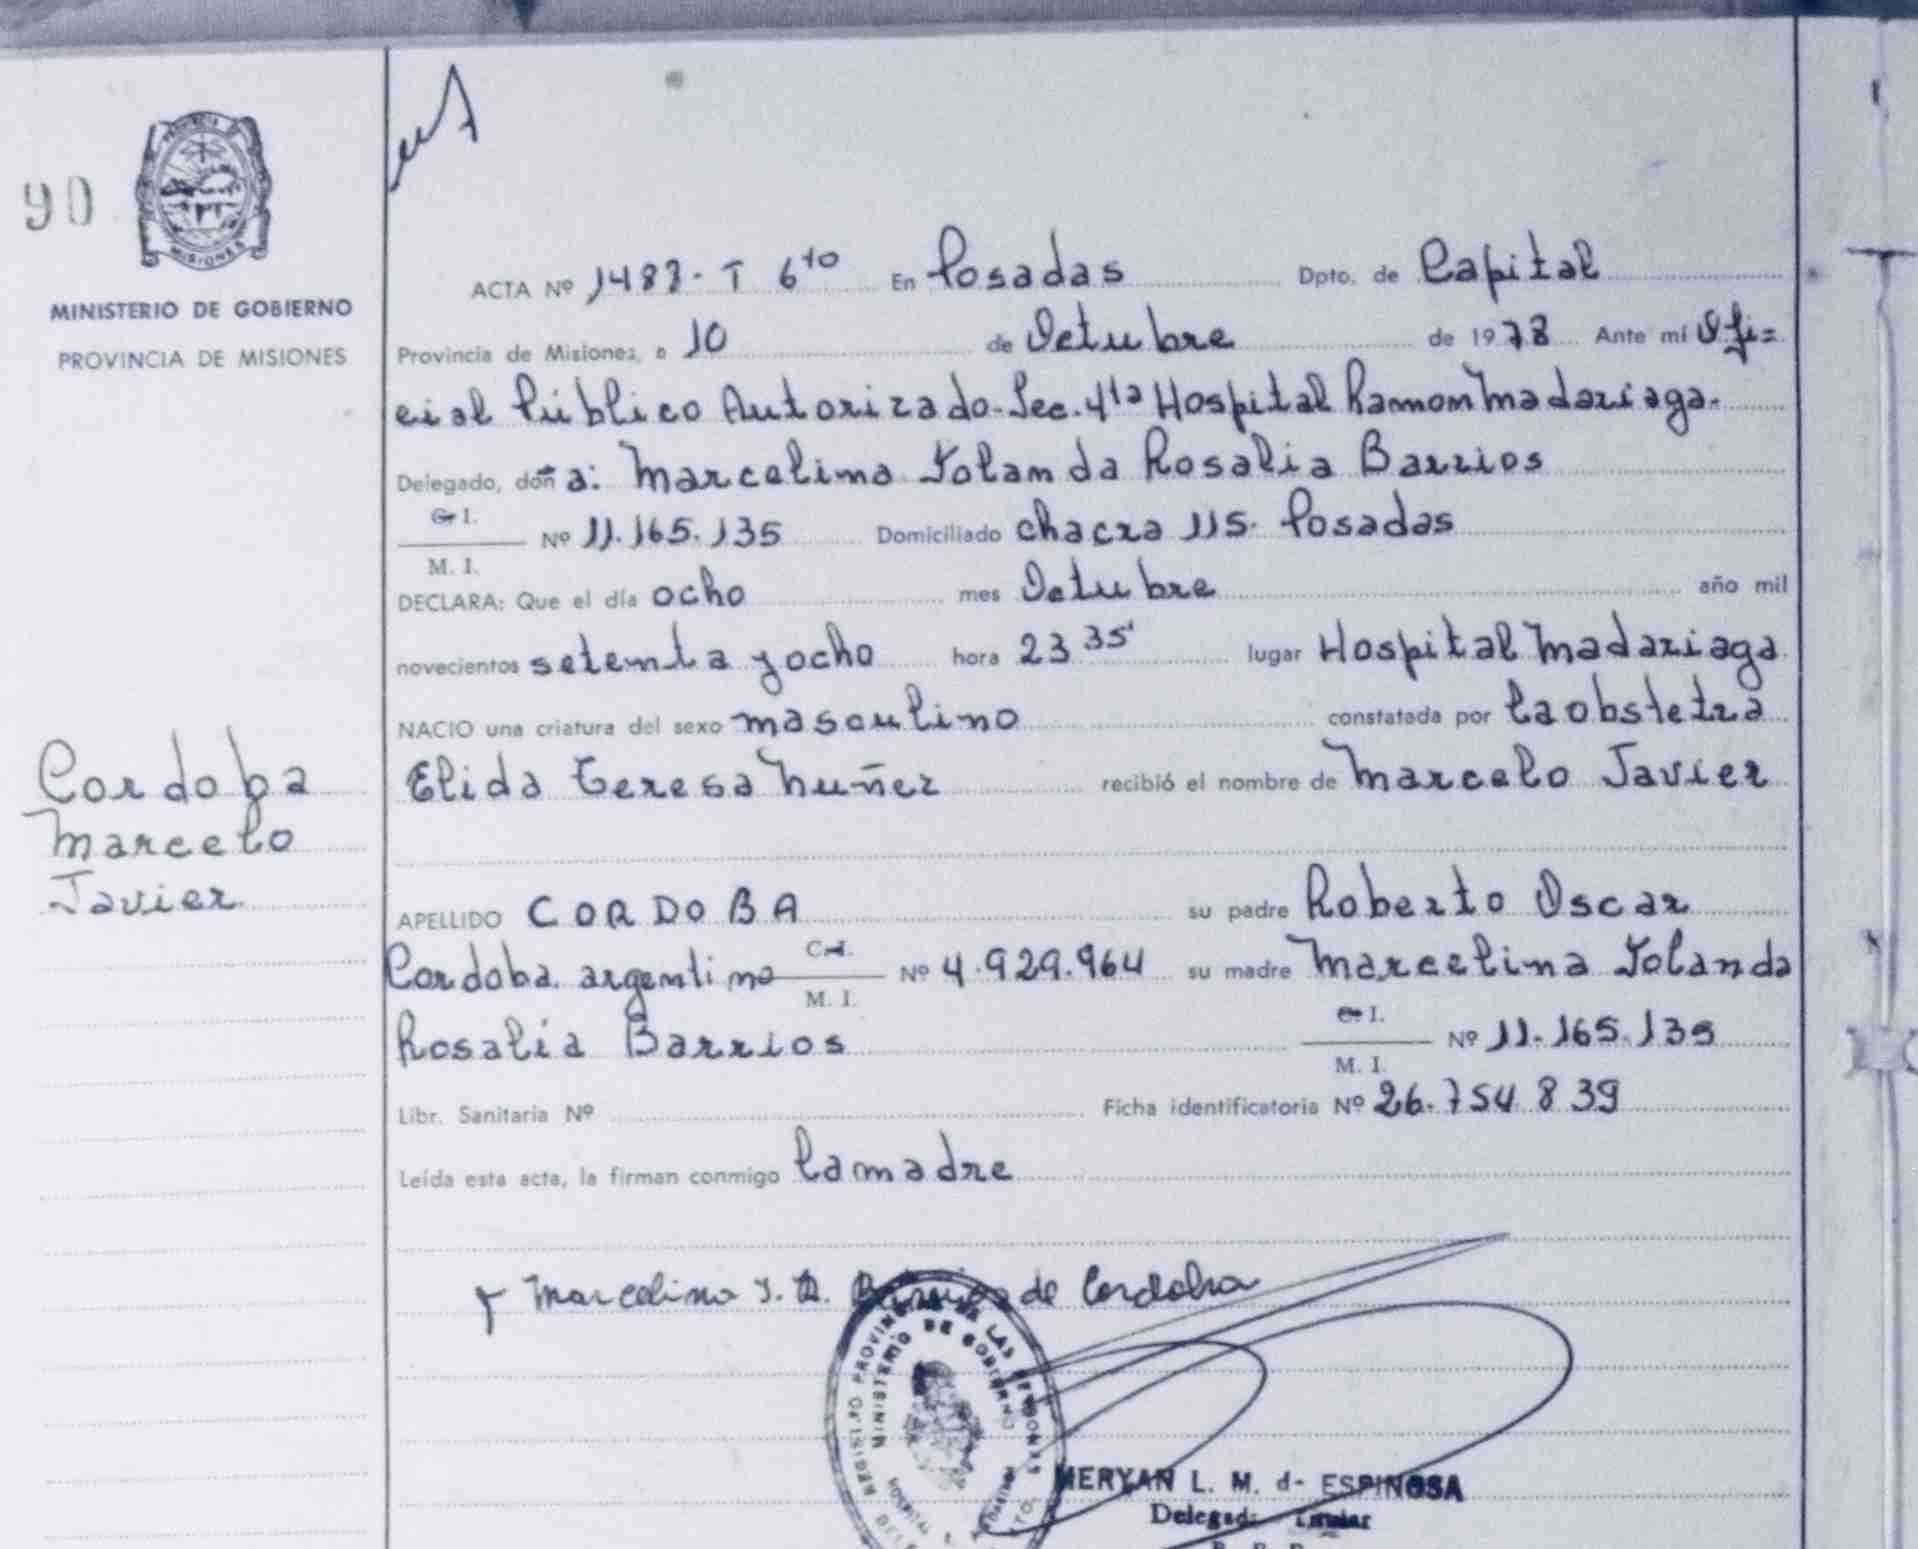 90
MISIONES
MINISTERIO DE GOBIERNO
PROVINCIA DE MISIONES
Cordoba
Marcelo
Javier
ACTA Nº 1483. T 6to En Posadas Dpto. de Capital
Provincia de Misiones, a 10 de Octubre de 1978 Ante mí Ofi=
cial Público Autorizado. Sec. 4ta Hospital Ramon Madariaga.
Delegado, doña: Marcelina Yolanda Rosalia Barrios
C. I.
Nº 11.165.135 Domiciliado chacra 115. Posadas
M. I.
DECLARA: Que el día ocho mes Octubre año mil
novecientos setenta y ocho hora 23 35' lugar Hospital Madariaga
NACIO una criatura del sexo masculino constatada por la obstetra
Elida Teresa Nuñez recibió el nombre de Marcelo Javier
APELLIDO CORDOBA su padre Roberto Oscar
Cordoba. argentino C. I. M. I. Nº 4.929.964 su madre Marcelina Yolanda
Rosalía Barrios C. I. M. I. Nº 11.165.135
Libr. Sanitaria Nº Ficha identificatoria Nº 26.754.839
Leída esta acta, la firman conmigo la madre
Marcelina Y. R. Barrios de Cordoba
MINISTERIO DE GOBIERNO
MERYAN L. M. d- ESPINOSA